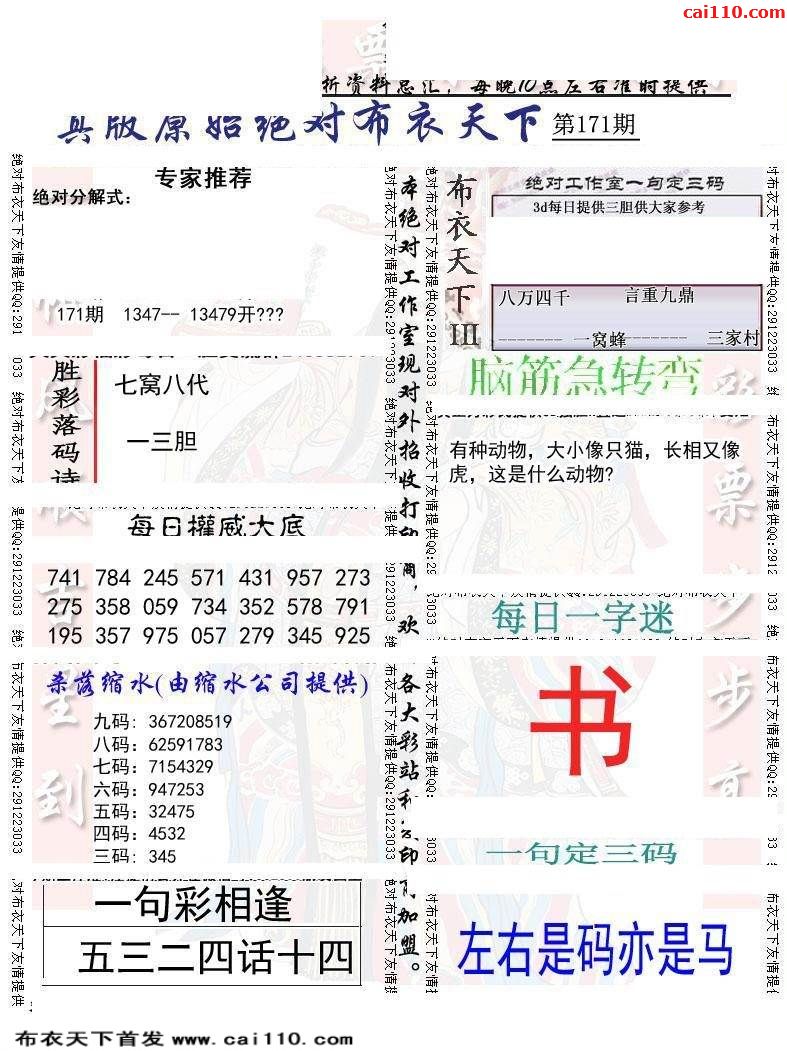 cai110.com
析资料总汇，每晚10点左右准时提供
具版原始绝对布衣天下 第171期
专家推荐
绝对分解式：
171期 1347-- 13479开???
胜彩落码诗
七窝八代
一三胆
每日权威大底
741 784 245 571 431 957 273
275 358 059 734 352 578 791
195 357 975 057 279 345 925
杀落缩水(由缩水公司提供)
九码：367208519
八码：62591783
七码：7154329
六码：947253
五码：32475
四码：4532
三码：345
一句彩相逢
五三二四话十四
本绝对工作室现对外招收打印
欢
各大彩站和
印
加盟。
布衣天下III
绝对工作室一句定三码
3d每日提供三胆供大家参考
八万四千 言重九鼎
------- 一窝蜂------- 三家村
脑筋急转弯
有种动物，大小像只猫，长相又像
虎，这是什么动物?
每日一字迷
书
一句定三码
左右是码亦是马
绝对布衣天下友情提供QQ:291223033
布衣天下首发 www.cai110.com